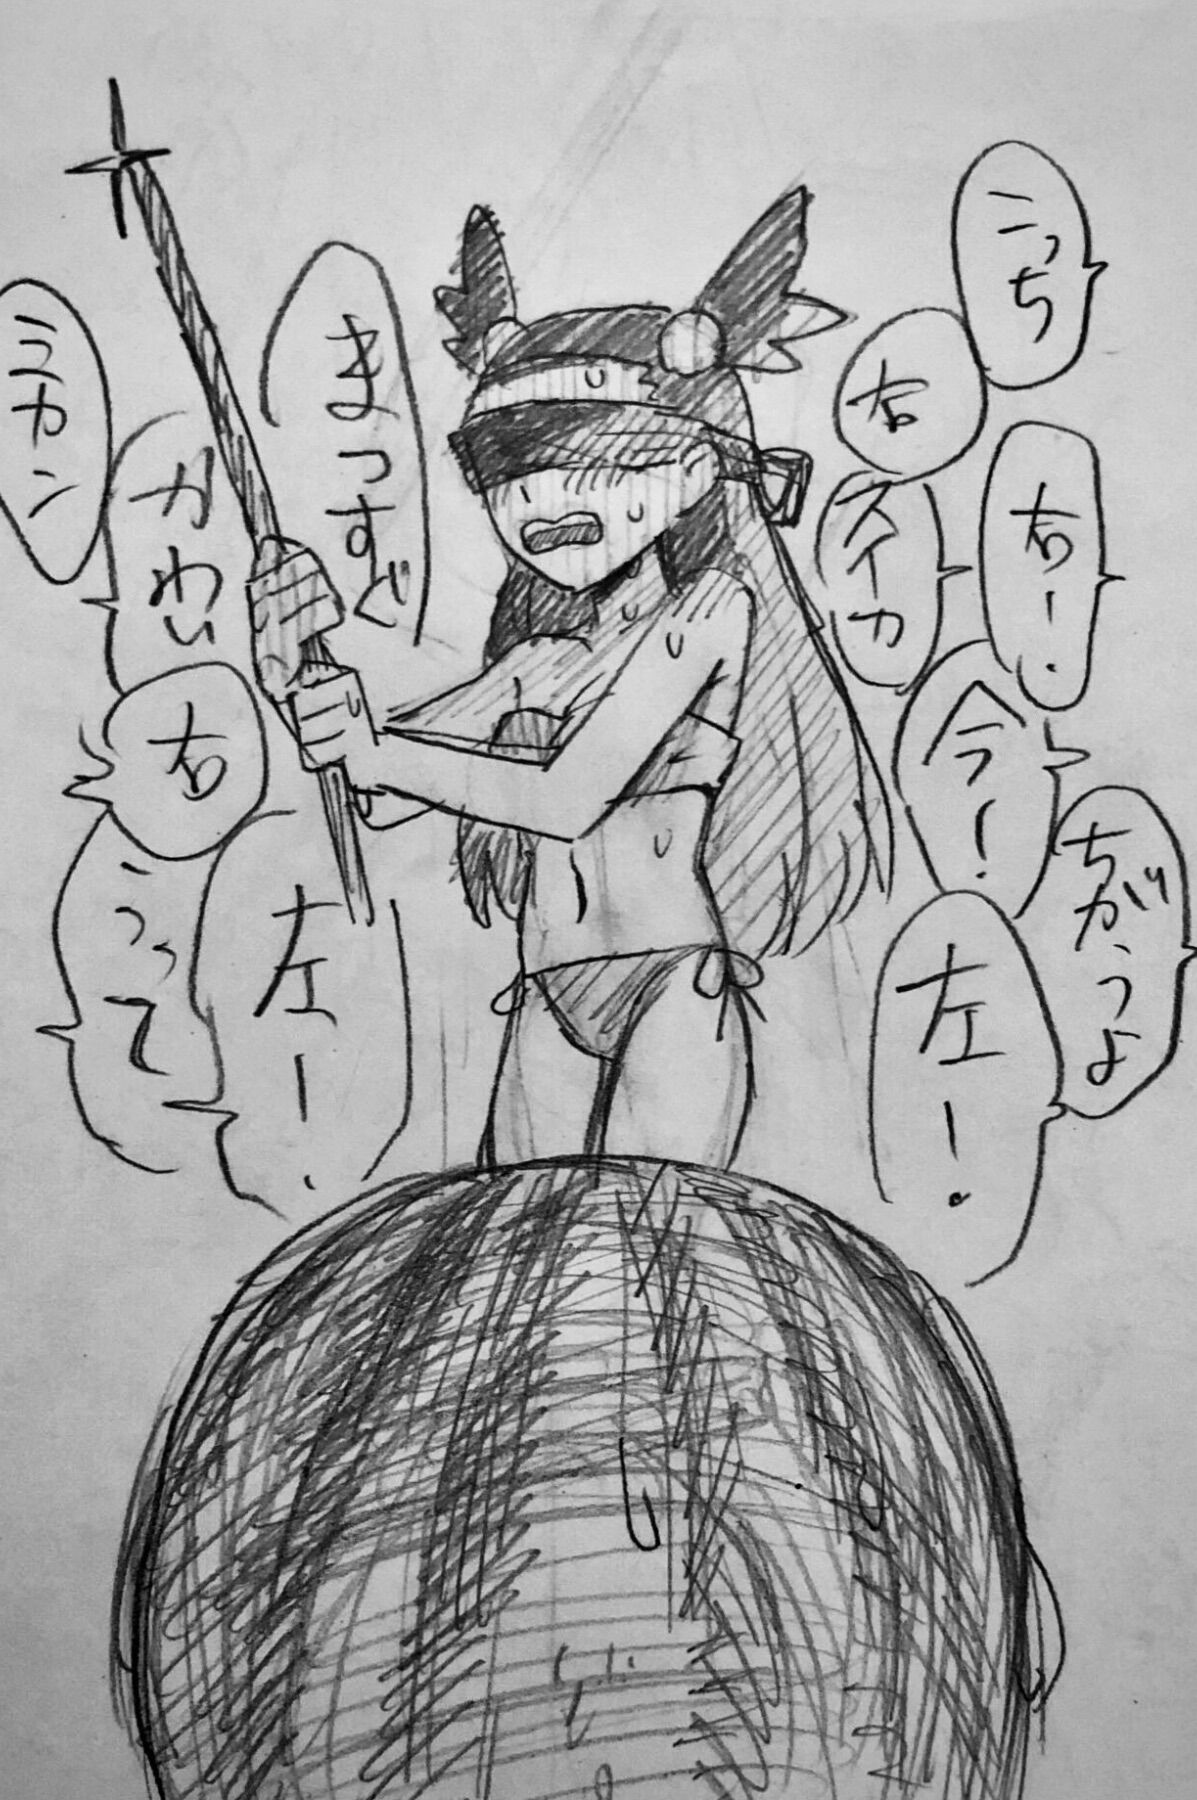 こっち
右
右ー.
スイカ
今!
ちがうよ
左ー.
まっすぐ
かわいい
ミカン
右
こって
左ー.